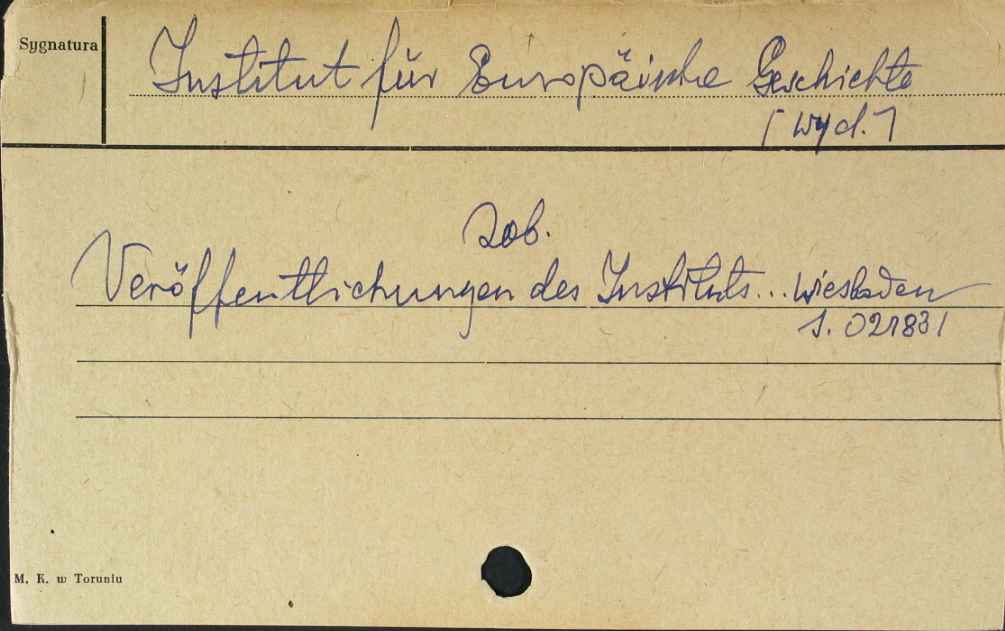 Sygnatura
Institut für Europäische Geschichte
[wyd.]
zob.
Veröffentlichungen des Instituts... Wiesbaden
S. 021831
M. K. w Toruniu